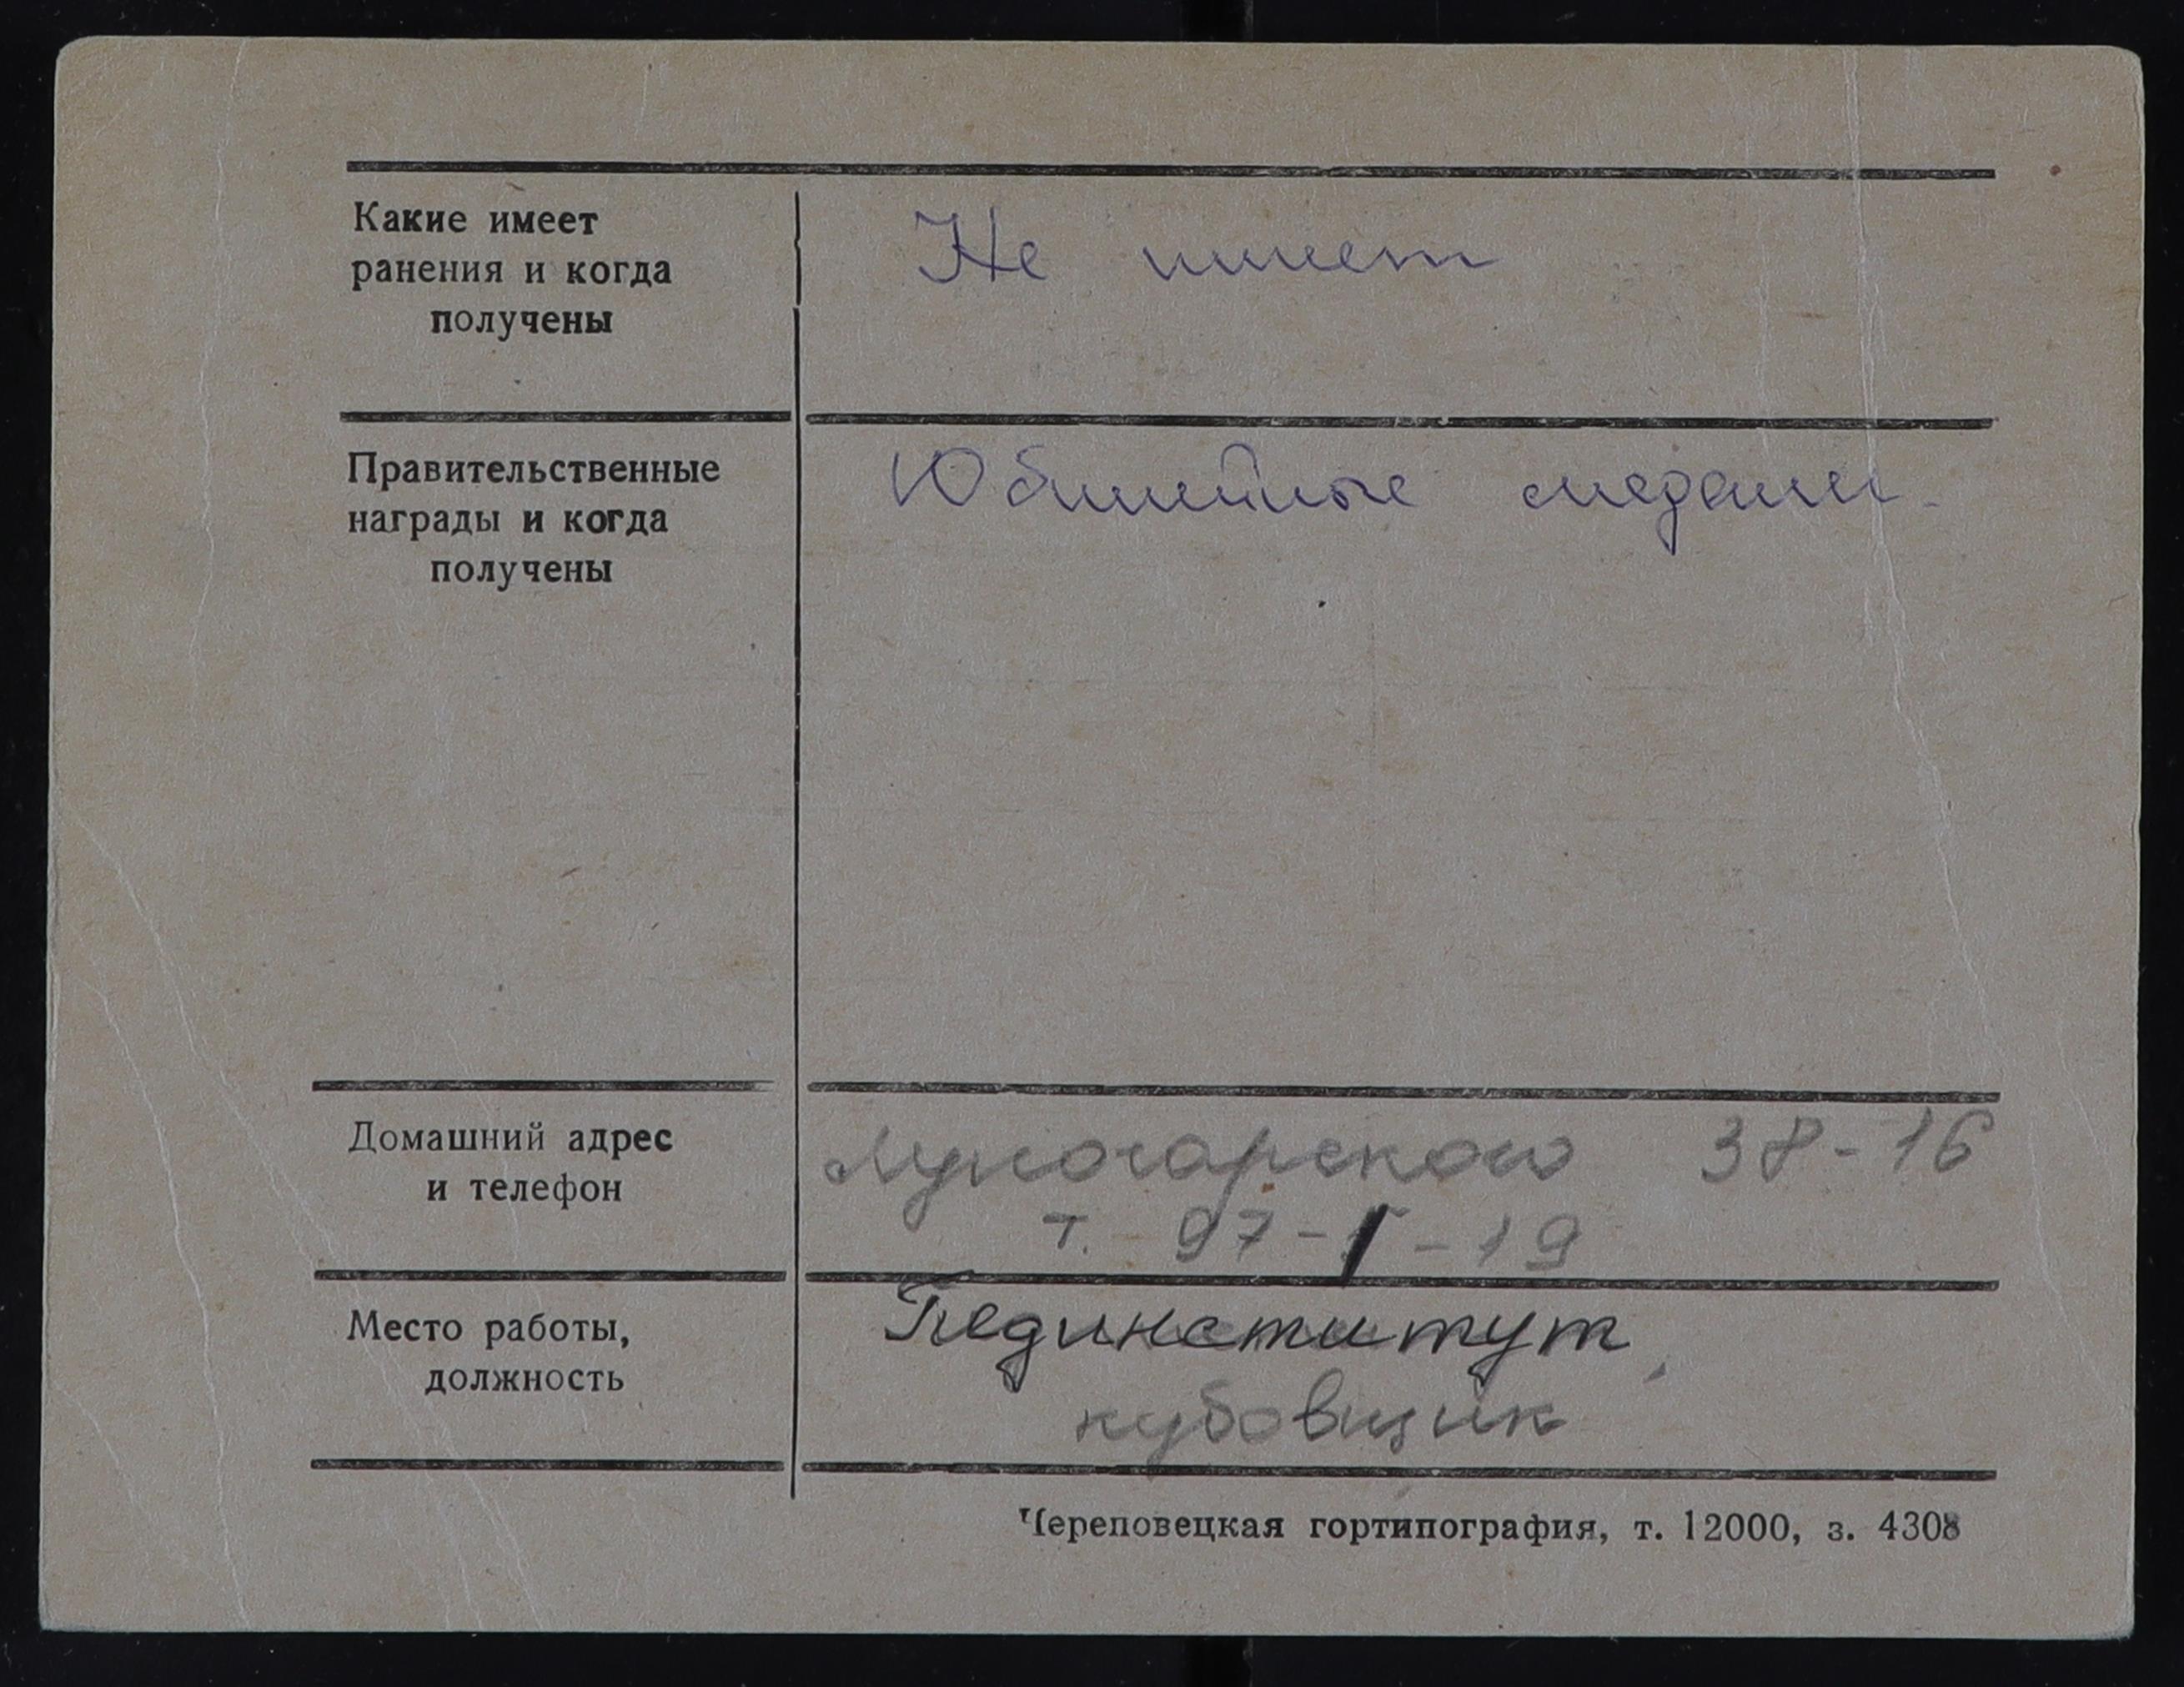 Какие имеет
ранения и когда
получены
Не имеет
Правительственные
награды и когда
получены
Юбилейные медали.
Домашний адрес
и телефон
Луночарского 38-16
т. 97-1-19
Место работы,
должность
Пединститут,
кубовщик
Череповецкая гортипография, т. 12000, з. 4308